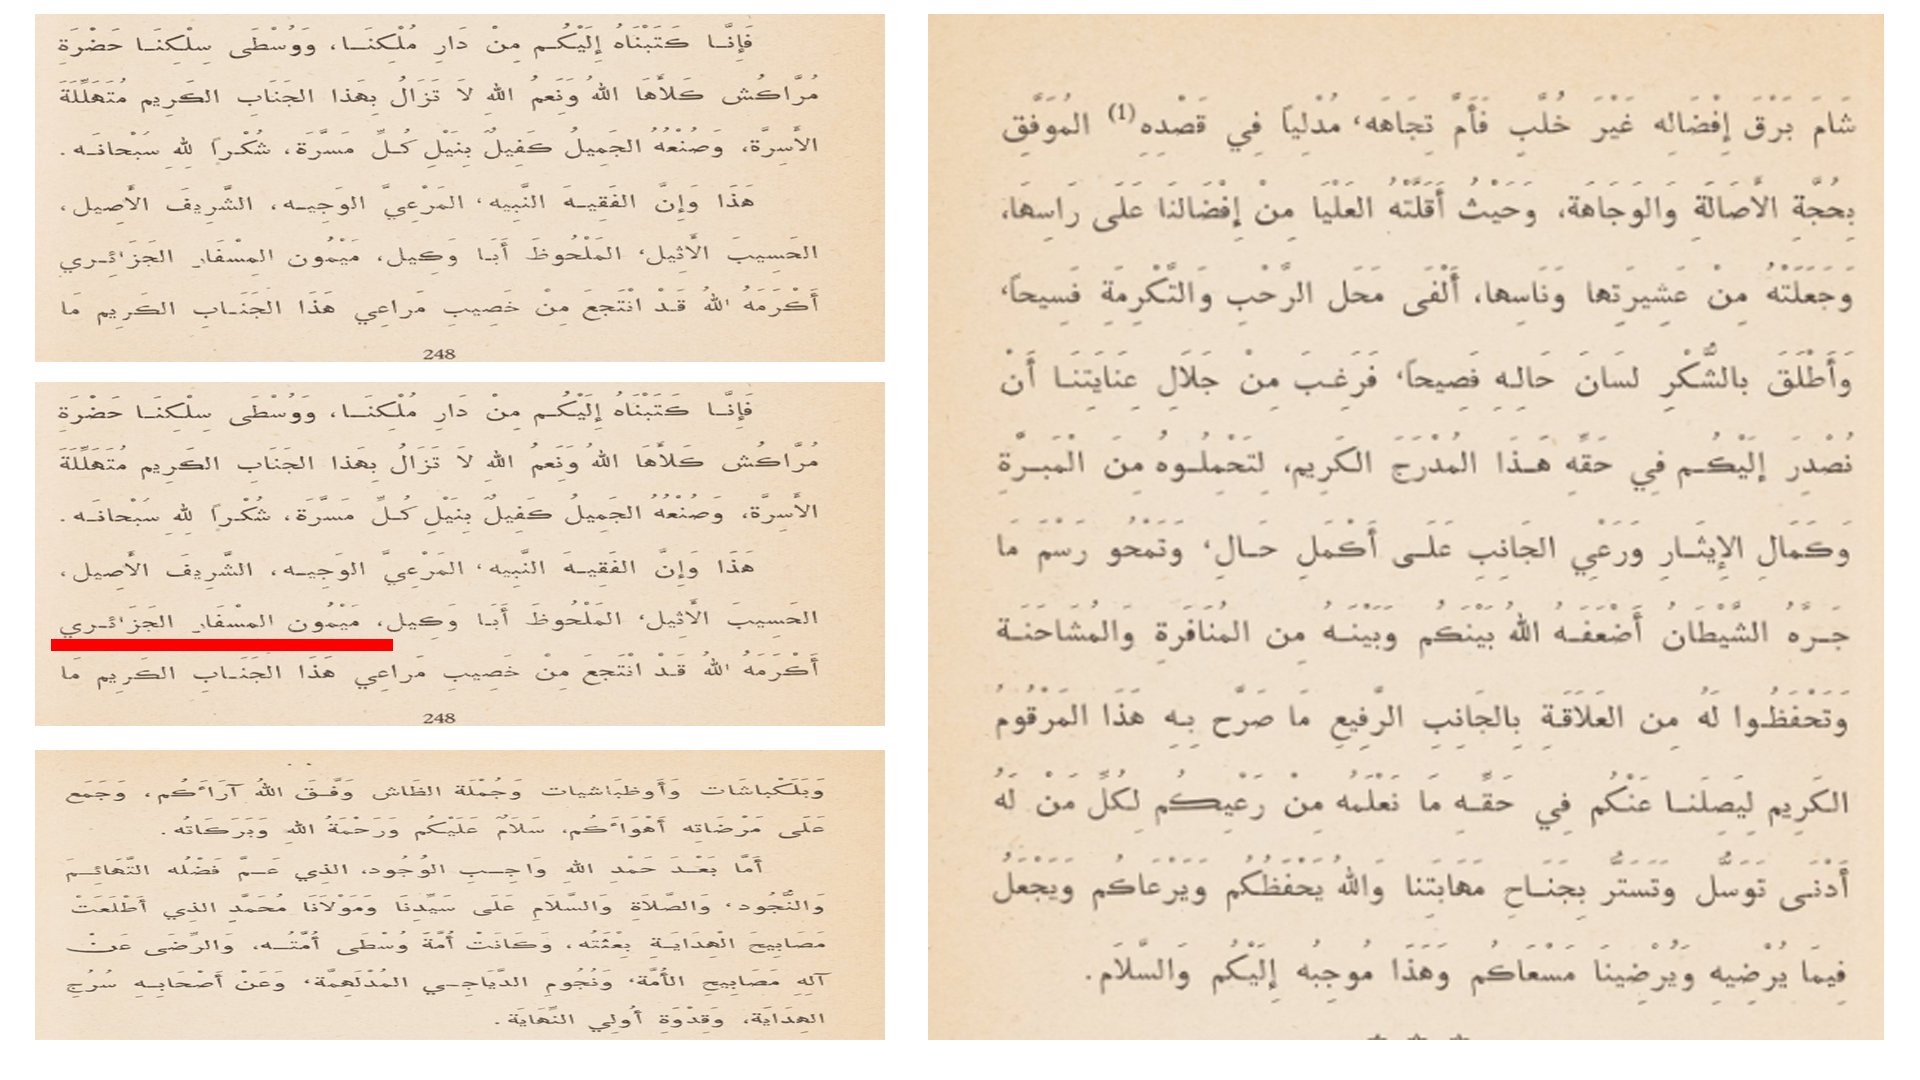 فَإِنَّـا كَتَبْنَاهُ إِلَيْكُـم مِنْ دَارِ مُلْكِنَــا، وَوُسْطَى سِلْكِنَـا حَضْرَةِ
مُرَّاكُش كَلَأَهَا اللهُ وَنَعِمُ اللهِ لَا تَزَالُ بِهَذا الجَنَابِ الكَرِيم مُتَهَلِّلَةَ
الأَسِرَّة، وَصُنْعُهُ الجَمِيلُ كَفِيلٌ بِنَيْلِ كُـلِّ مَسَرَّة، شُكْراً لِلهِ سَبْحانَـه.
هَذَا وَإِنَّ الفَقِيـهَ النَّبِيه، المَرْعِيَّ الوَجِيـه، الشَّرِيفَ الأَصِيل،
الحَسِيبَ الأَثِيل، المَلْحُوظَ أَبَـا وَكِيل، مَيْمُون المِسْفَار الجَزَائِـري
أَكْرَمَهُ اللهُ قَـدْ انْتَجعَ مِنْ خَصِيبِ مَراعِي هَذَا الجَنَـابِ الكَرِيم مَا
248
فَإِنَّـا كَتَبْنَاهُ إِلَيْكُـم مِنْ دَارِ مُلْكِنَــا، وَوُسْطَى سِلْكِنَـا حَضْرَةِ
مُرَّاكُش كَلَأَهَا اللهُ وَنَعِمُ اللهِ لَا تَزَالُ بِهَذا الجَنَابِ الكَرِيم مُتَهَلِّلَةَ
الأَسِرَّة، وَصُنْعُهُ الجَمِيلُ كَفِيلٌ بِنَيْلِ كُـلِّ مَسَرَّة، شُكْراً لِلهِ سَبْحانَـه.
هَذَا وَإِنَّ الفَقِيـهَ النَّبِيه، المَرْعِيَّ الوَجِيـه، الشَّرِيفَ الأَصِيل،
الحَسِيبَ الأَثِيل، المَلْحُوظَ أَبَـا وَكِيل، مَيْمُون المِسْفَار الجَزَائِـري
أَكْرَمَهُ اللهُ قَـدْ انْتَجعَ مِنْ خَصِيبِ مَراعِي هَذَا الجَنَـابِ الكَرِيم مَا
248
وَبَلَكْبَاشَات وَأَوظَبَاشيات وَجُمْلَة الظَّاش وَفَّـقَ اللهُ آرَاءَكُم، وَجَمَع
عَلَى مَرْضَاتِه أَهْوَاءَكُم، سَلَامٌ عَلَيْكُم وَرَحْمَةُ اللهِ وَبَرَكَاتُه.
أَمَّا بَعْـدَ حَمْدِ اللهِ وَاجِــبِ الوُجُود، الذِي عَــمَّ فَضْلُه التَّهَائِــمَ
وَالنُّجُود، وَالصَّلَاةِ وَالسَّلَامِ عَلَى سَيِّدِنَا وَمَوْلَانَا مُحَمَّدٍ الذِي أَطْلَعَتْ
مَصَابِيحَ الْهِدَايَـةِ بِعْثَتُه، وَكَانَتْ أُمَّةً وُسْطَى أُمَّتُــه، وَالرِّضَى عَنْ
آلِهِ مَصَابِيحِ الأُمَّة، وَنُجُومِ الدَّيَاجِـي المُدْلَهِمَّة، وَعَنْ أَصْحَابِـهِ سُرُجِ
الهِدَايَة، وَقِدْوَةِ أُولِي النِّهَايَة.
شَامَ بَرْقَ إِفْضَالِه غَيْرَ خُلَّبٍ فَأَمَّ تِجَاهَه، مُدْلِياً فِي قَصْدِهِ (1) المُوَفَّقِ
بِحُجَّةِ الأَصَالَةِ وَالوَجَاهَة، وَحَيْثُ أَقَلَّتْه العَلْيَا مِنْ إِفْضَالنَا عَلَى رَاسِهَا،
وَجَعَلَتْهُ مِنْ عَشِيرَتِها وَنَاسِها، أَلْفَى مَحَل الرَّحْبِ وَالتَّكْرِمَةِ فَسِيحاً،
وَأَطْلَقَ بالشُّكْرِ لسَانَ حَالِـهِ فَصِيحاً، فَرَغِـبَ مِنْ جَلَالِ عِنَايَتِنَـا أَن
نُصْدِرَ إِلَيْكُـم فِي حَقِّهِ هَـذَا المُدْرَجَ الكَرِيم، لِتَحْمِلُـوهُ مِنَ الْمَبَـرَّةِ
وَكَمَالِ الإِيثَـارِ وَرَعْيِ الجَانِبِ عَلَـى أَكْمَلِ حَـالِ، وَتَمْحُو رَسْمَ مَا
جَـرَّهُ الشَّيْطَانُ أَضْعَفَـهُ اللهُ بَيْنَكُم وَبَيْنَـهُ مِن المُنَافَرةِ وَالمُشَاحَنَـة
وَتَحْفَظُـوا لَهُ مِن العَلَاقَـةِ بِالجَانِبِ الرفِيعِ مَا صَرَّح بِـهِ هَذَا المَرْقُومُ
الكَرِيم لِيَصِلَنـا عَنْكُم فِي حَقِّـهِ مَا نَعْلمهُ مِنْ رَعْيِكُم لِكُلِّ مَنْ لَهُ
أَدْنَـى تَوَسُّل وَتَسَتر بِجنَـاحِ مَهَابَتِنا وَاللهُ يَحْفَظُكُم وَيرعاكُم وَيَجْعَلُ
فِيمَا يُرْضِيهِ وَيُرْضِينَا مَسْعَاكُم وَهَذَا مُوجِبُه إِلَيْكُم وَالسَّلَام.